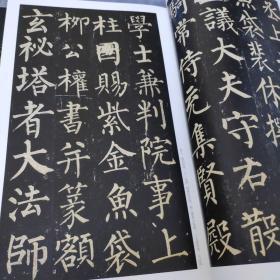 袋裴休
議大夫守右散
常侍充集賢殿
學士兼判院事上
柱國賜紫金魚袋
柳公權書并篆額
玄秘塔者大法師